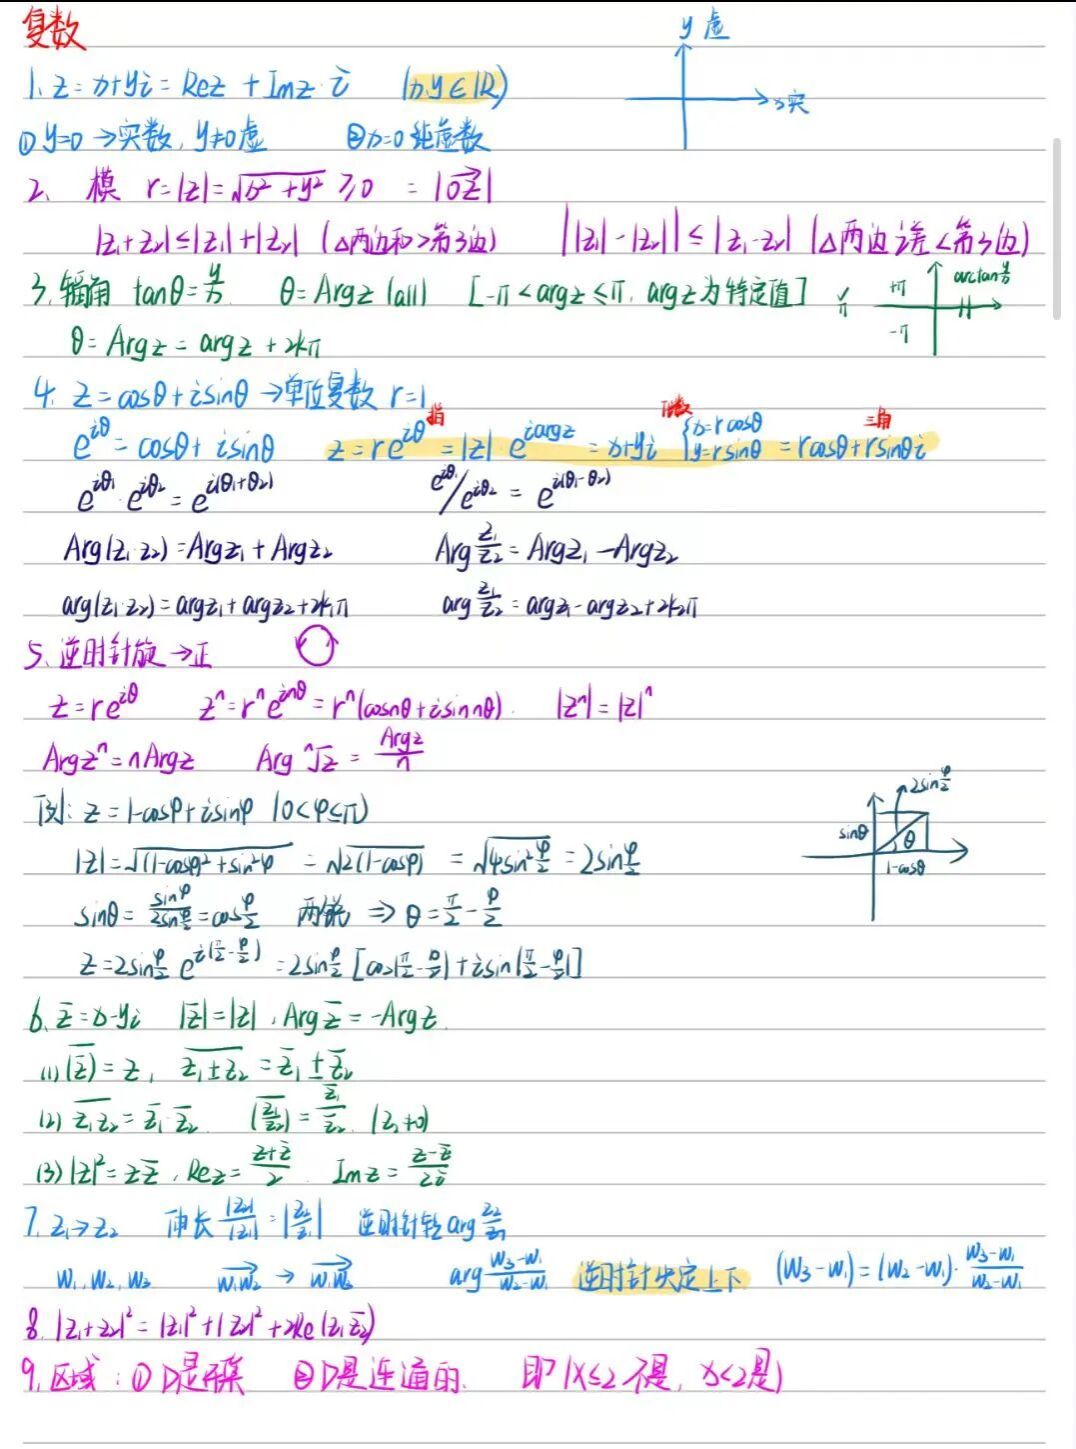 复数
y 虚
1. z = x+yi = Rez + Imz·i (x,y∈R)
x实
① y=0 →实数, y≠0虚 ②x=0 纯虚数
2. 模 r=|z|=√x²+y² ≥0 = |OZ|
|z₁+z₂|≤|z₁|+|z₂| (△两边和>第3边) ||z₁|-|z₂||≤|z₁-z₂| (△两边之差<第3边)
3. 辐角 tanθ=y/x θ=Argz (all) [-π<argz≤π, argz为特定值]
+π arctan y/x
π
-π
θ=Argz=argz+2kπ
4. z=cosθ+isinθ→单位复数 r=1
指 代数 三角
e^{iθ}=cosθ+isinθ z=re^{iθ}=|z|·e^{iargz}=x+yi {x=rcosθ y=rsinθ =rcosθ+rsinθi
e^{iθ₁}·e^{iθ₂}=e^{i(θ₁+θ₂)} e^{iθ₁}/e^{iθ₂}=e^{i(θ₁-θ₂)}
Arg(z₁·z₂)=Argz₁+Argz₂ Arg z₁/z₂=Argz₁-Argz₂
arg(z₁·z₂)=argz₁+argz₂+2k₁π arg z₁/z₂=argz₁-argz₂+2k₂π
5. 逆时针旋→正
z=re^{iθ} zⁿ=rⁿe^{inθ}=rⁿ(cosnθ+isinnθ). |zⁿ|=|z|ⁿ
Argzⁿ=nArgz Arg ⁿ√z=Argz/n
例: z=1-cosφ+isinφ (0<φ≤π)
2sin φ/2
sinθ θ
1-cosθ
|z|=√(1-cosφ)²+sin²φ =√2(1-cosφ) =√4sin² φ/2 =2sin φ/2
sinθ=sinφ/2sin φ/2=cos φ/2 两锐 ⇒ θ=π/2-φ/2
z=2sin φ/2 e^{i(π/2-φ/2)}=2sin φ/2 [cos(π/2-φ/2)+isin(π/2-φ/2)]
6. z̄=x-yi |z̄|=|z|, Argz̄=-Argz.
(1) \overline{(z̄)}=z, \overline{z₁±z₂}=z̄₁±z̄₂
(2) \overline{z₁z₂}=z̄₁·z̄₂. \overline{(z₁/z₂)}=z̄₁/z̄₂. (z₂≠0)
(3) |z|²=zz̄, Rez=z+z̄/2. Imz=z-z̄/2i
7. z₁→z₂ 伸长 |z₂|/|z₁|=|z₂/z₁| 逆时针转arg z₂/z₁
w₁,w₂,w₃ w₁w₂→w₁w₃ arg w₃-w₁/w₂-w₁ 逆时针决定上下 (w₃-w₁)=(w₂-w₁)·w₃-w₁/w₂-w₁
8. |z₁+z₂|²=|z₁|²+|z₂|²+2Re(z₁z̄₂)
9. 区域: ① D是开集 ②D是连通的. 即(X≤2不是, x<2是)